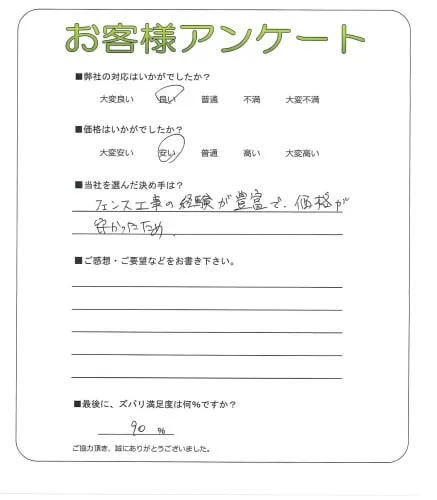 お客様アンケート
■弊社の対応はいかがでしたか?
大変良い 良い 普通 不満 大変不満
■価格はいかがでしたか?
大変安い 安い 普通 高い 大変高い
■当社を選んだ決め手は?
フェンス工事の経験が豊富で、価格が
安かったため、
■ご感想・ご要望などをお書き下さい。
■最後に、ズバリ満足度は何%ですか?
90 %
ご協力頂き、誠にありがとうございました。